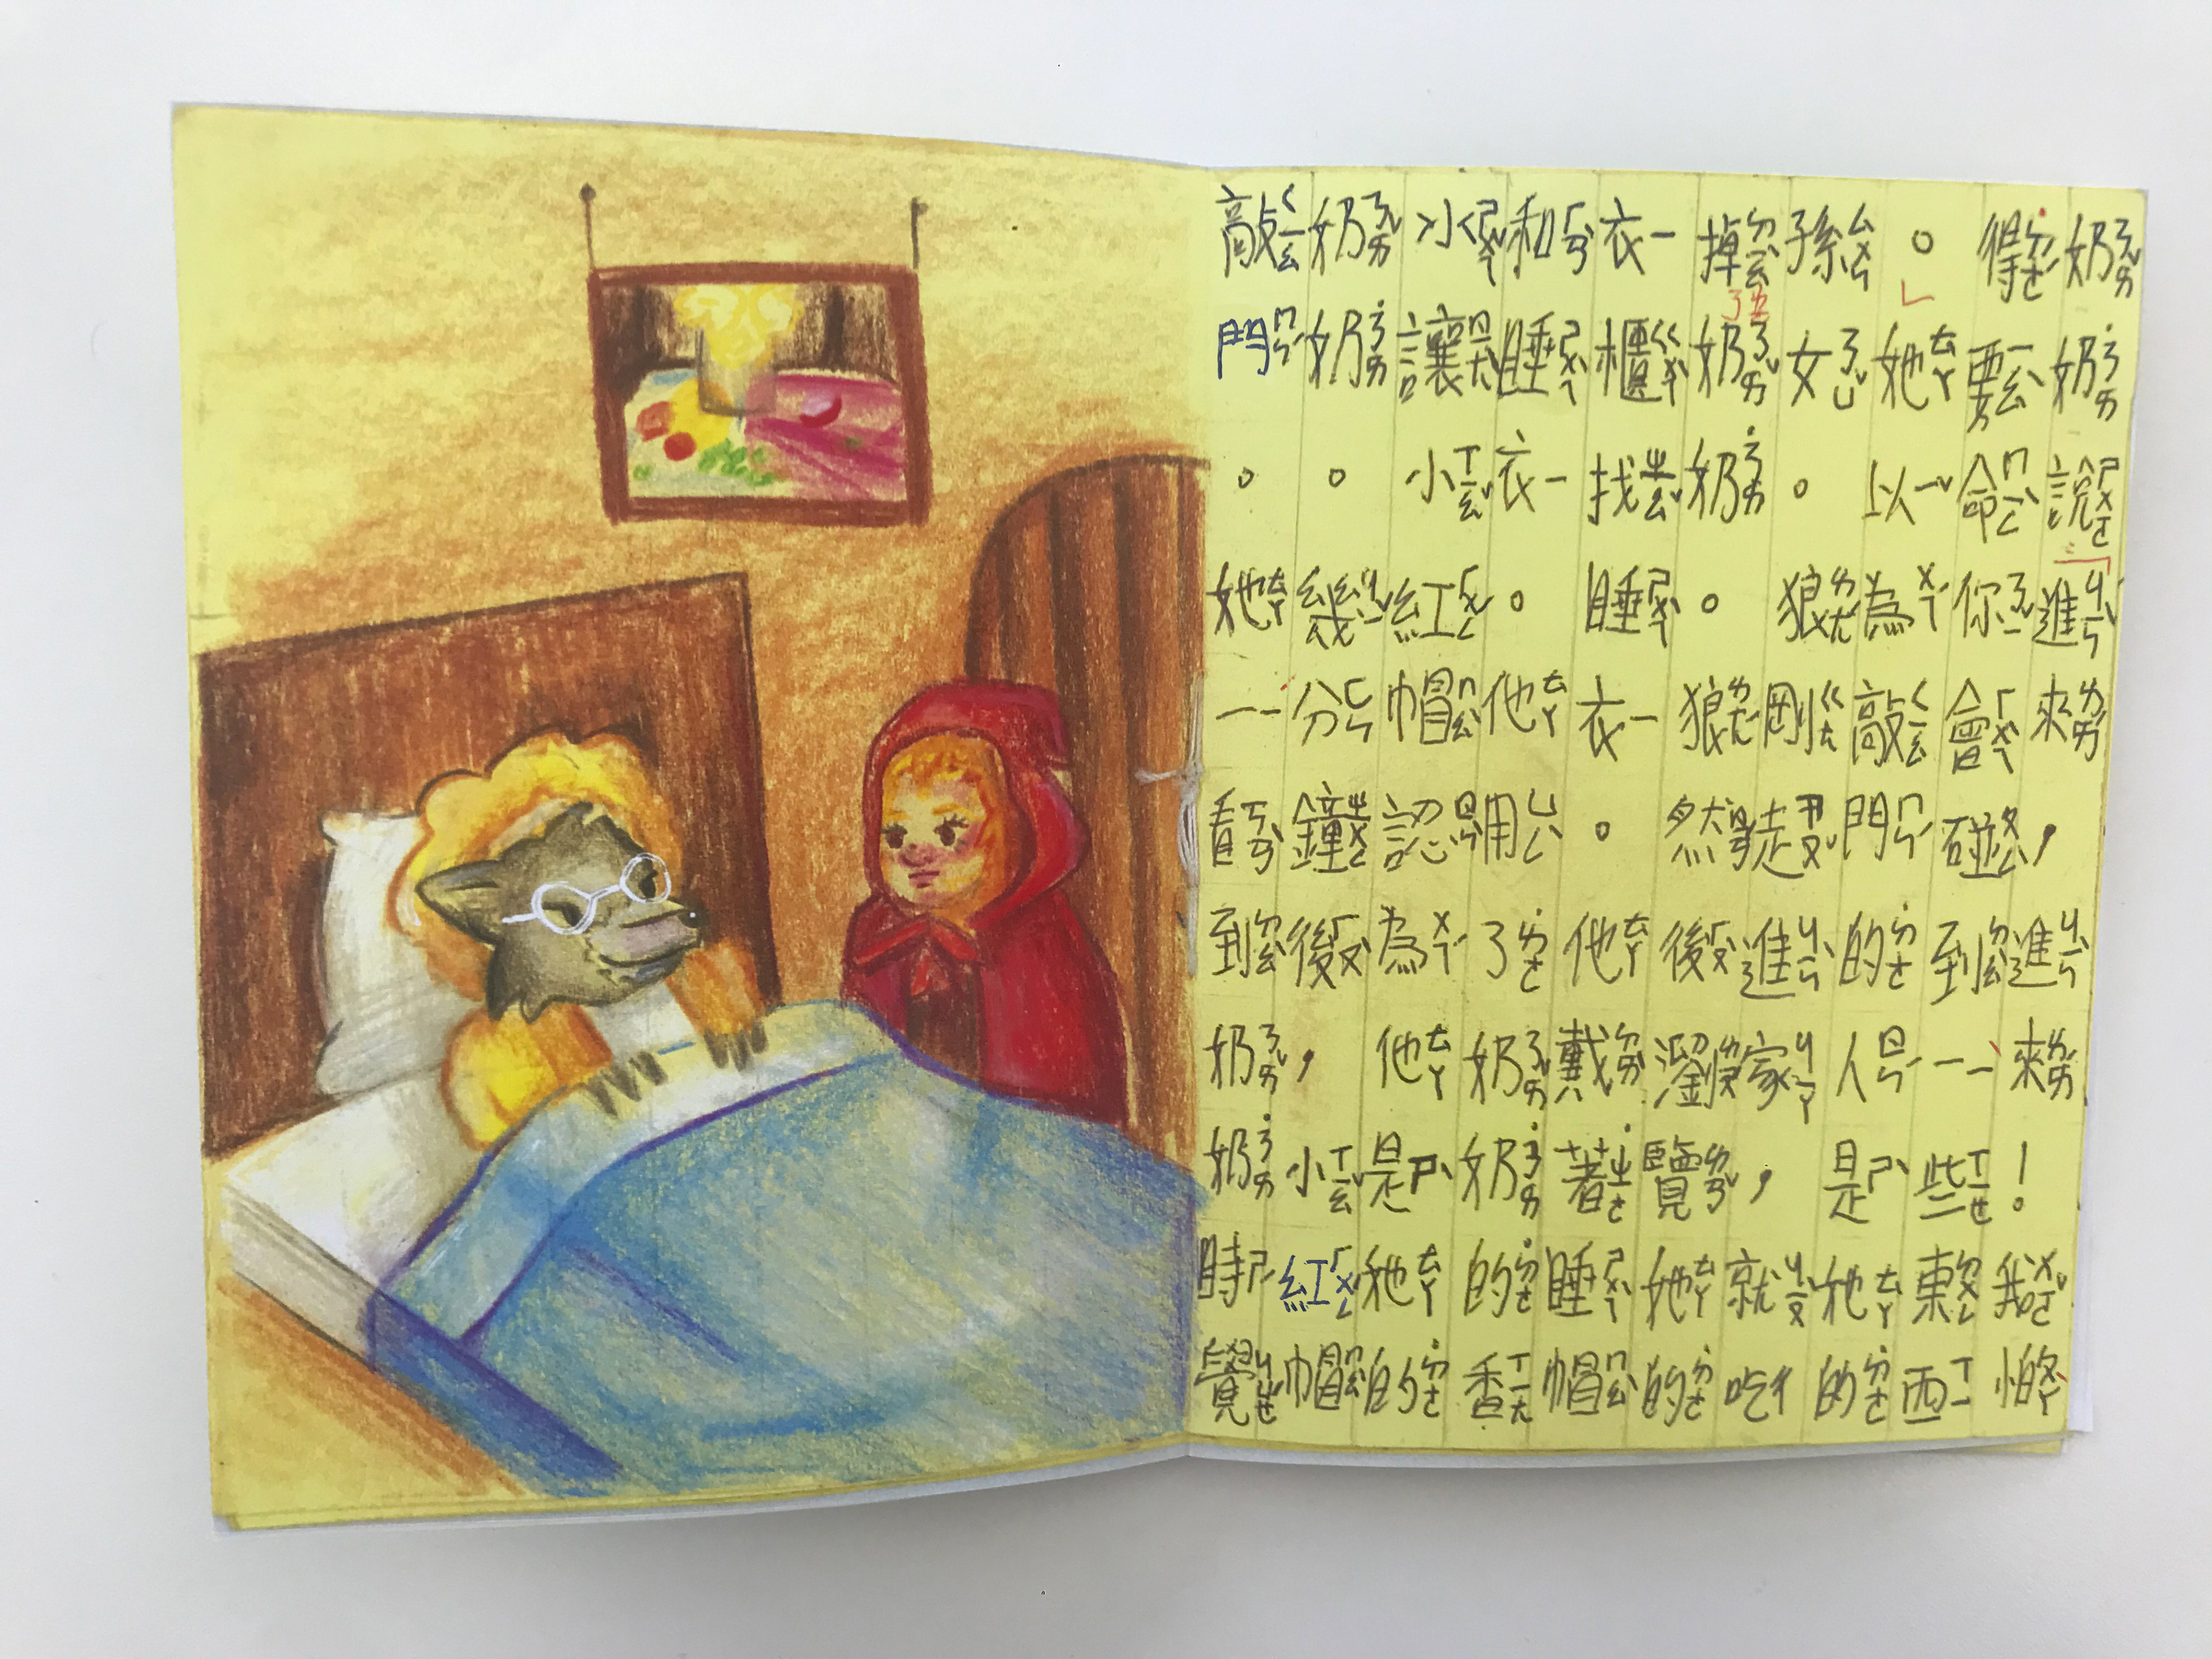 奶奶說進來,進來!我怕
得要命你會碰到一些東西
。她以為敲門的人是她的
孫女。狼剛走進家,就吃
掉奶奶。狼然後溜覽她的
衣櫃找睡衣。他戴著睡帽
和睡衣。他用了奶奶的香
水讓小紅帽認為他是她的
奶奶。幾分鐘後,小紅帽
敲門。她一看到奶奶時覺